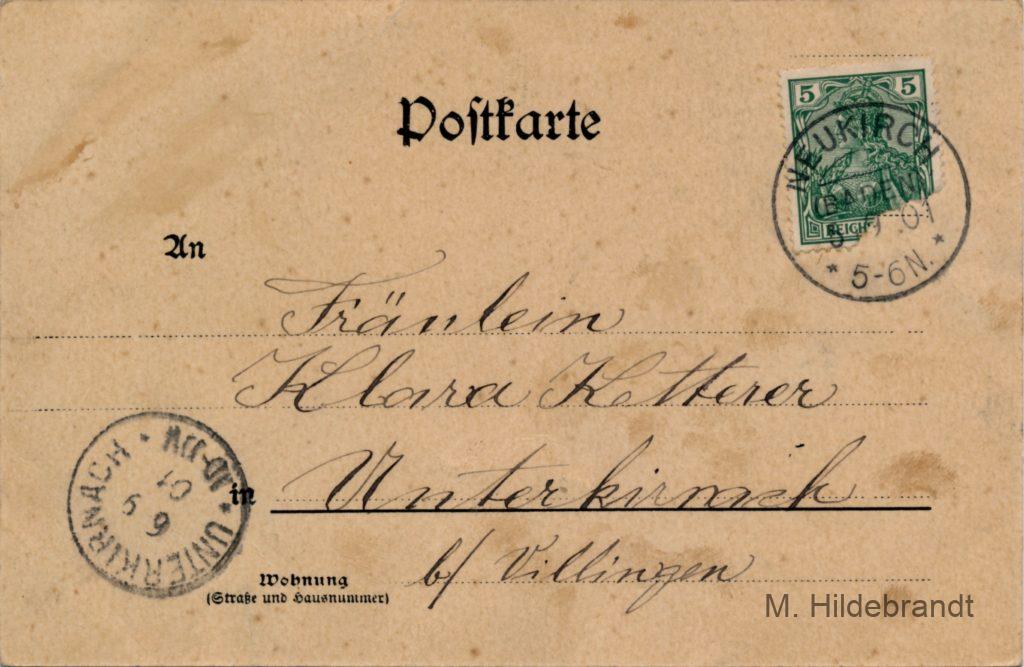 Postkarte
5 5
REICH
NEUKIRCH
(BADEN)
9 .01
* 5-6N. *
An
Fräulein
Klara Ketterer
in Unterkirnach
b/ Villingen
* UNTERKIRNACH *
6 9
01
Wohnung
(Straße und Hausnummer)
M. Hildebrandt